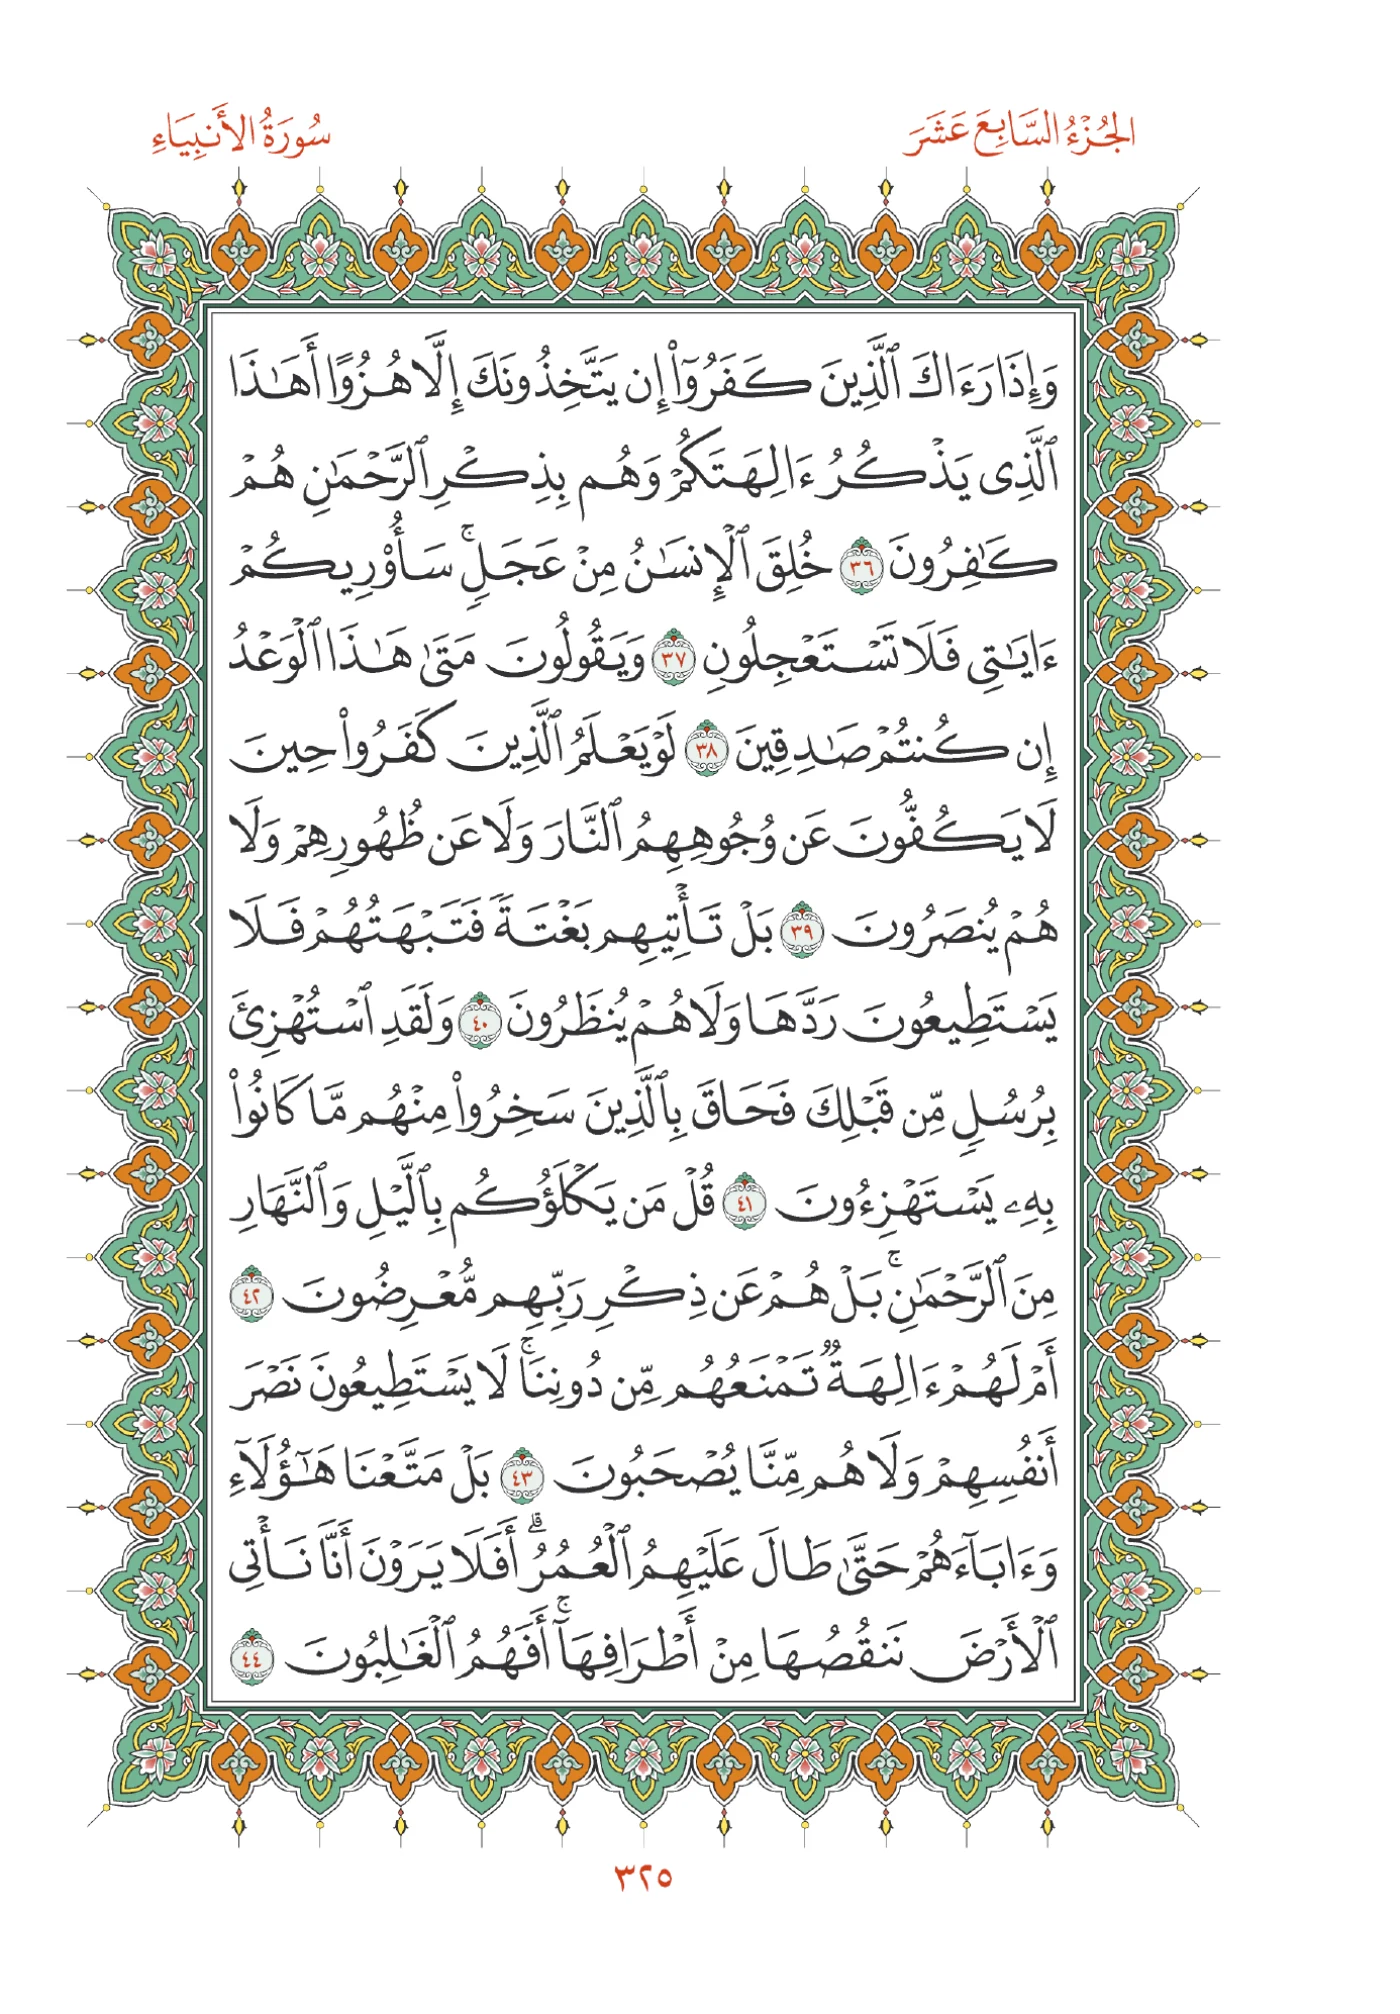 الجُزْءُ السَّابِعَ عَشَرَ
سُورَةُ الأَنبِيَاءِ
وَإِذَا رَءَاكَ ٱلَّذِينَ كَفَرُوٓا۟ إِن يَتَّخِذُونَكَ إِلَّا هُزُوًا أَهَـٰذَا
ٱلَّذِى يَذْكُرُ ءَالِهَتَكُمْ وَهُم بِذِكْرِ ٱلرَّحْمَـٰنِ هُمْ
كَـٰفِرُونَ ٣٦ خُلِقَ ٱلْإِنسَـٰنُ مِنْ عَجَلٍ ۚ سَأُو۟رِيكُمْ
ءَايَـٰتِى فَلَا تَسْتَعْجِلُونِ ٣٧ وَيَقُولُونَ مَتَىٰ هَـٰذَا ٱلْوَعْدُ
إِن كُنتُمْ صَـٰدِقِينَ ٣٨ لَوْ يَعْلَمُ ٱلَّذِينَ كَفَرُوا۟ حِينَ
لَا يَكُفُّونَ عَن وُجُوهِهِمُ ٱلنَّارَ وَلَا عَن ظُهُورِهِمْ وَلَا
هُمْ يُنصَرُونَ ٣٩ بَلْ تَأْتِيهِم بَغْتَةً فَتَبْهَتُهُمْ فَلَا
يَسْتَطِيعُونَ رَدَّهَا وَلَا هُمْ يُنظَرُونَ ٤٠ وَلَقَدِ ٱسْتُهْزِئَ
بِرُسُلٍ مِّن قَبْلِكَ فَحَاقَ بِٱلَّذِينَ سَخِرُوا۟ مِنْهُم مَّا كَانُوا۟
بِهِۦ يَسْتَهْزِءُونَ ٤١ قُلْ مَن يَكْلَؤُكُم بِٱلَّيْلِ وَٱلنَّهَارِ
مِنَ ٱلرَّحْمَـٰنِ ۚ بَلْ هُمْ عَن ذِكْرِ رَبِّهِم مُّعْرِضُونَ ٤٢
أَمْ لَهُمْ ءَالِهَةٌ تَمْنَعُهُم مِّن دُونِنَا ۚ لَا يَسْتَطِيعُونَ نَصْرَ
أَنفُسِهِمْ وَلَا هُم مِّنَّا يُصْحَبُونَ ٤٣ بَلْ مَتَّعْنَا هَـٰٓؤُلَآءِ
وَءَابَآءَهُمْ حَتَّىٰ طَالَ عَلَيْهِمُ ٱلْعُمُرُ ۗ أَفَلَا يَرَوْنَ أَنَّا نَأْتِى
ٱلْأَرْضَ نَنقُصُهَا مِنْ أَطْرَافِهَآ ۚ أَفَهُمُ ٱلْغَـٰلِبُونَ ٤٤
٣٢٥